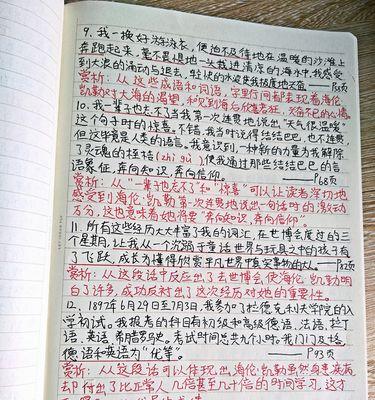 9. 我一换好游泳衣,便迫不及待地在温暖的沙滩上
奔跑起来,毫不畏惧地一头栽进清凉的海水中,我感受
到大浪的涌动与退去,轻快的水波使我极度地欢愉——P8页
赏析:从这些成语和词语,字里行间都表现着海伦·
凯勒对大海的渴望,和见到海后欣喜若狂、欢愉不已的心情。
10. 我一辈子也忘不了当我第一次连贯地说出"天气很温暖"
这个句子时的惊喜。不错,我当时说得结结巴巴,也不连贯,
但这毕竟是人类的语言。我意识到,一种新的力量为我解除
了灵魂的桎梏(zhì gù),使我通过那些结结巴巴的语
言象征,奔向知识,奔向信仰。——P68页
赏析:从"一辈子也忘不了"和"惊喜"可以让读者深切地
感受到海伦·凯勒第一次连贯地说出一句话时的激动
万分,这也意味着她将要"奔向知识,奔向信仰"。
11. 所有这些经历大大丰富了我的词汇,在世博会度过的三
个星期,让我从一个沉溺于童话世界与玩具之中的孩子有
了飞跃,成长为懂得欣赏平凡世界中真实事物的人。——P82页
赏析:从这段话中反应出了去世博会使海伦·凯勒明
白了许多,成功反衬出了这次经历对她的重要性。
12. 1897年6月29日至7月3日,我参加了拉德克利夫学院的入
学初试。我报考的科目有初级和高级德语、法语、拉丁
语、英语、希腊罗马史。考试时间总共九小时。我门门及格,
德语和英语为"优等"。——P93页
赏析:从这段话可以体现出海伦·凯勒虽然身患疾病
却付出了比正常人几倍甚至几十倍的时间学习,这才